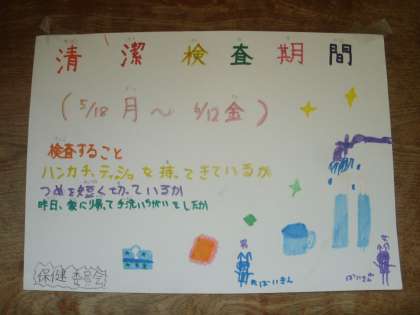 清潔検査期間
(5/18月〜6/12金)
検査すること
ハンカチ、ティッシュを持ってきているか
つめを短く切っているか
昨日、家に帰って手洗いうがいをしたか
ばいきん
ばいきん
保健委員会